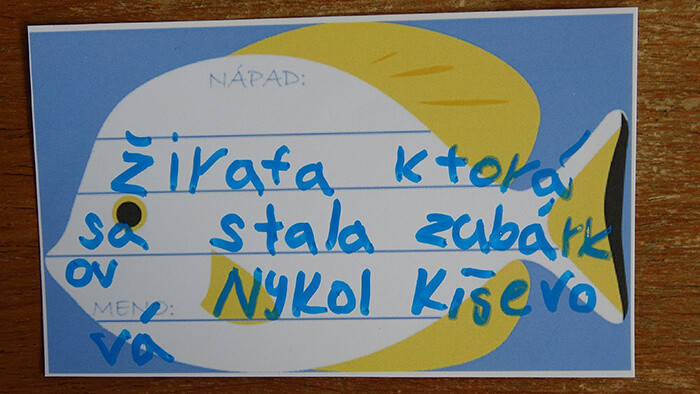 NÁPAD:
Žirafa ktorá
sa stala zubárk
ov
MENO: Nykol Kiševo
vá